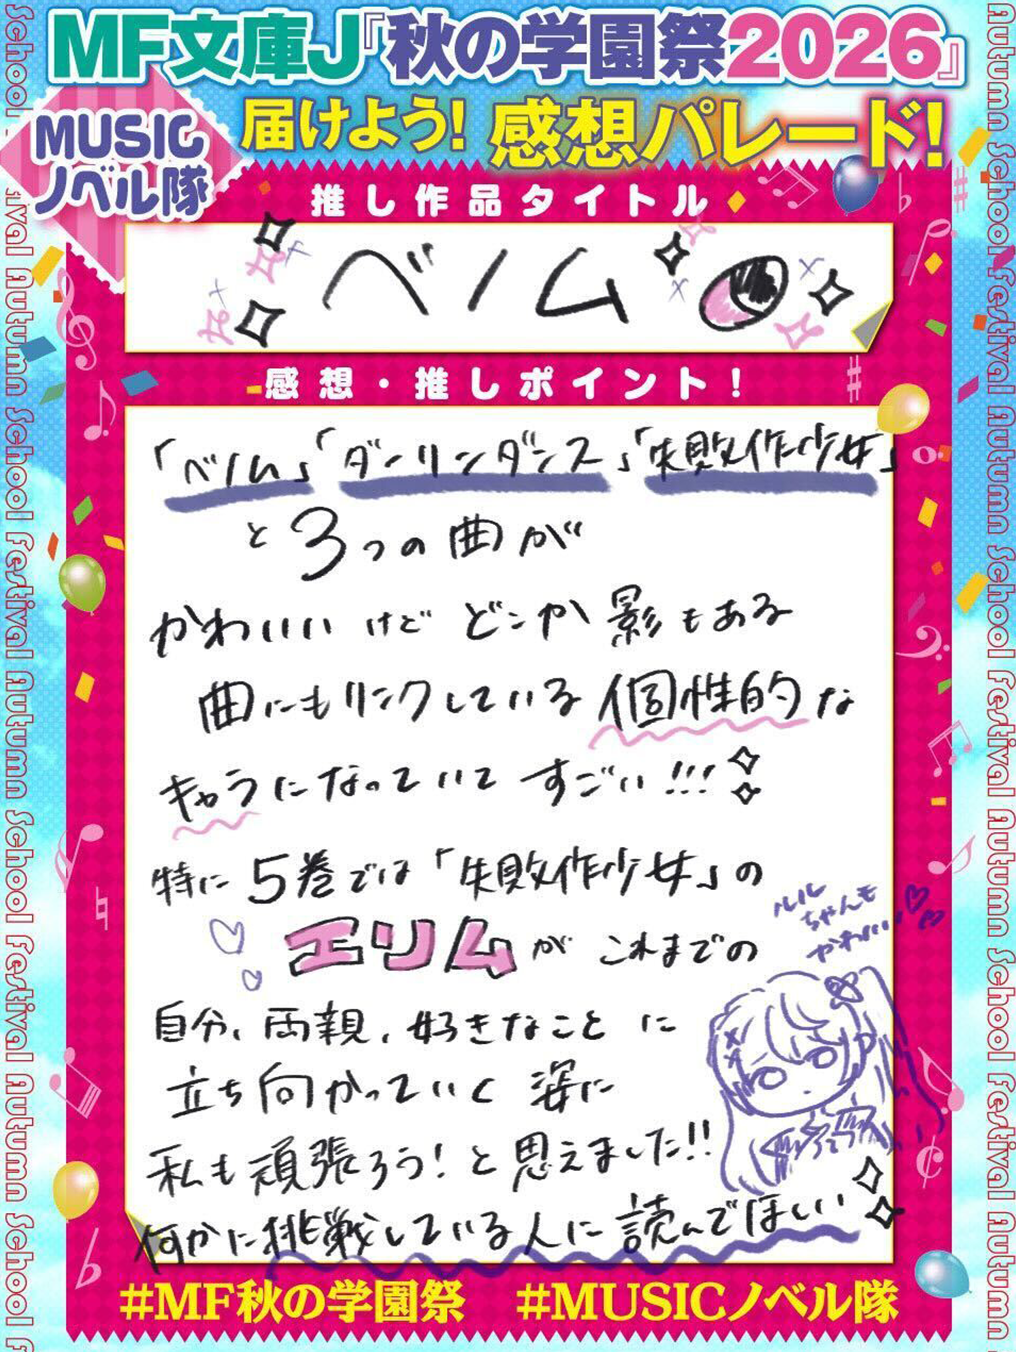 MF文庫J『秋の学園祭2026』
MUSIC
ノベル隊
届けよう!感想パレード!
推し作品タイトル
ベノム
感想・推しポイント!
「ベノム」「ダーリンダンス」「失敗作少女」
と3つの曲が
かわいいけどどこか影もある
曲にもリンクしている個性的な
キャラになっていてすごい!!!
特に5巻では「失敗作少女」の
エリムがこれまでの
ルルちゃんも
かわいい
自分、両親、好きなことに
立ち向かっていく姿に
私も頑張ろう!と思えました!!
何かに挑戦している人に読んでほしい
#MF秋の学園祭 #MUSICノベル隊
Autumn School Festival Autumn School Festival Autumn School Festival
School Festival Autumn School Festival Autumn School Festival